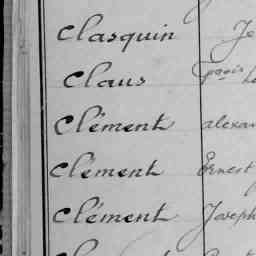 Clasquin Je
Claus
Clément alexan
Clément Ernest
Clément Joseph